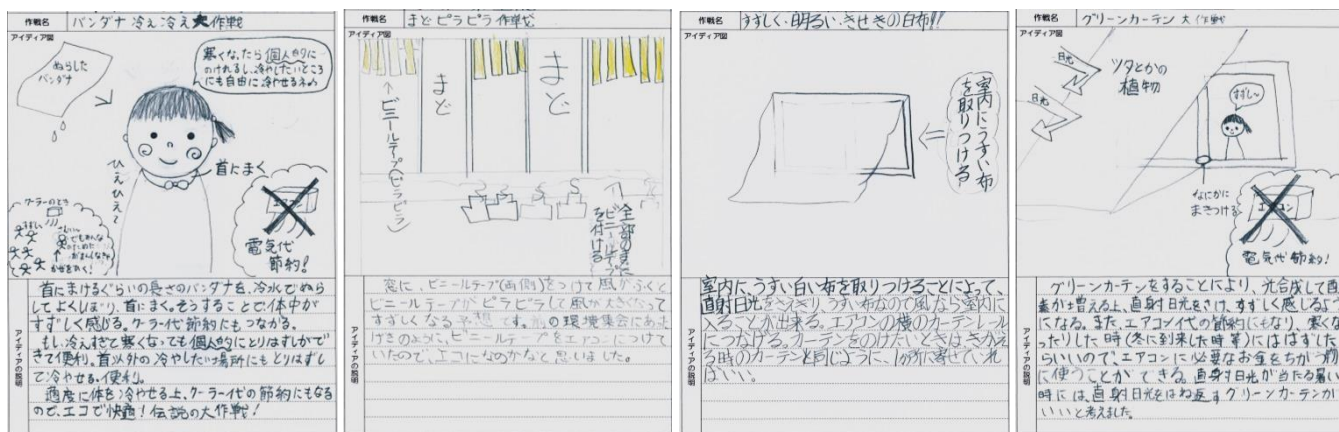 作戦名
バンダナ冷え冷え大作戦
アイディア図
ぬらした
バンダナ
寒くなったら個人的に
のけれるし、冷やしたいところ
にも自由に冷やせるネ♪
ひえひえ〜
首にまく
クーラーのとき
エアコン
電気代
節約!
アイディアの説明
首にまけるぐらいの長さのバンダナを、冷水でぬら
してよくしぼり、首にまく。そうすることで、体中が
すずしく感じる。クーラー代節約にもつながる。
もし、冷えすぎて寒くなっても個人的にとりはずしがで
きて便利。首以外の冷やしたい場所にもとりはずし
て冷やせる。便利。
適度に体を冷やせる上、クーラー代の節約にもなる
ので、エコで快適!伝説の大作戦!
作戦名
まどピラピラ作戦
アイディア図
まど
まど
←ビニールテープ(ピラピラ)
全部のまどに
ビニールテープ
を付ける
アイディアの説明
窓に、ビニールテープ(両側)をつけて風がふくと
ビニールテープがピラピラして風が大きくなって
すずしくなる予想です。前の環境集会にあった
ように、ビニールテープをエアコンにつけて
いたので、エコになるのかなと思いました。
作戦名
すずしく・明るい・きせきの白布!!
アイディア図
室内にうすい布
を取りつける
アイディアの説明
室内に、うすい白い布を取りつけることによって、
直射日光をさえぎり、うすい布なので風なら室内に
入ることが出来る。エアコンの横のカーテンレール
につなげる。カーテンをのけたいときは、きがえ
る時のカーテンと同じように、1か所に寄せていれ
ばいい。
作戦名
グリーンカーテン大作戦
アイディア図
日光
日光
ツタとかの
植物
すずし〜
なにかに
まきつける
エアコン
電気代節約!
アイディアの説明
グリーンカーテンをすることにより、光合成して酸
素が増える上、直射日光をさけ、すずしく感じるよう
になる。また、エアコン代の節約にもなり、寒くな
ったりした時(冬に到来した時等)にははずした
らいいので、エアコンに必要なお金をちがう物
に使うことができる。直射日光が当たる暑い
時には、直射日光をはね返すグリーンカーテンが
いいと考えました。